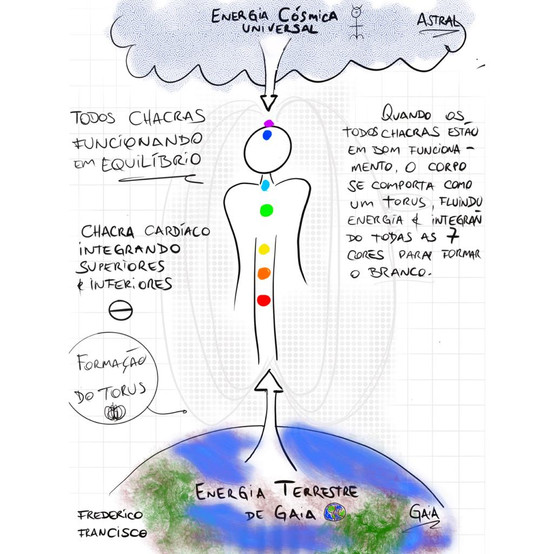 ENERGIA CÓSMICA
UNIVERSAL
ASTRAL
TODOS CHACRAS
FUNCIONANDO
EM EQUILÍBRIO
QUANDO OS
TODOS CHACRAS ESTÃO
EM BOM FUNCIONA-
MENTO, O CORPO
SE COMPORTA COMO
UM TORUS, FLUINDO
ENERGIA & INTEGRAN
DO TODAS AS 7
CORES PARA FORMAR
O BRANCO.
CHACRA CARDÍACO
INTEGRANDO
SUPERIORES
& INFERIORES
FORMAÇÃO
DO TORUS
ENERGIA TERRESTRE
DE GAIA
GAIA
FREDERICO
FRANCISCO